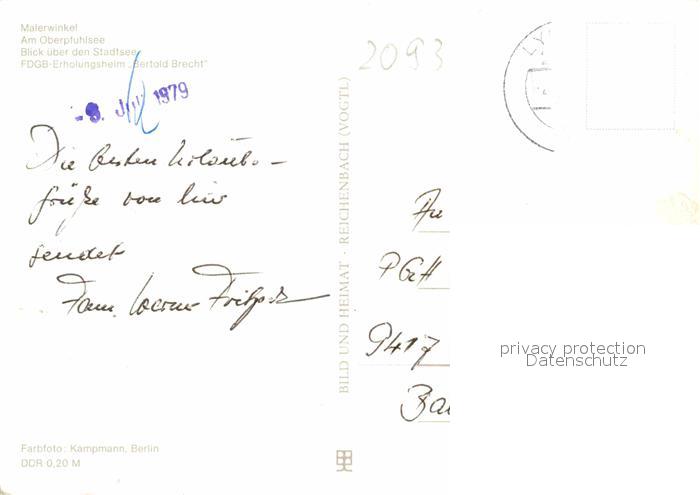 Malerwinkel
Am Oberpfuhlsee
Blick über den Stadtsee
FDGB-Erholungsheim „Bertold Brecht"
2093
-9. Juli 1979
Die besten Urlaubs-
grüße von hier
sendet
Fam. Werner
BILD UND HEIMAT · REICHENBACH (VOGTL)
LY
An
PGH
9417
privacy protection
Datenschutz
Farbfoto: Kampmann, Berlin
DDR 0,20 M